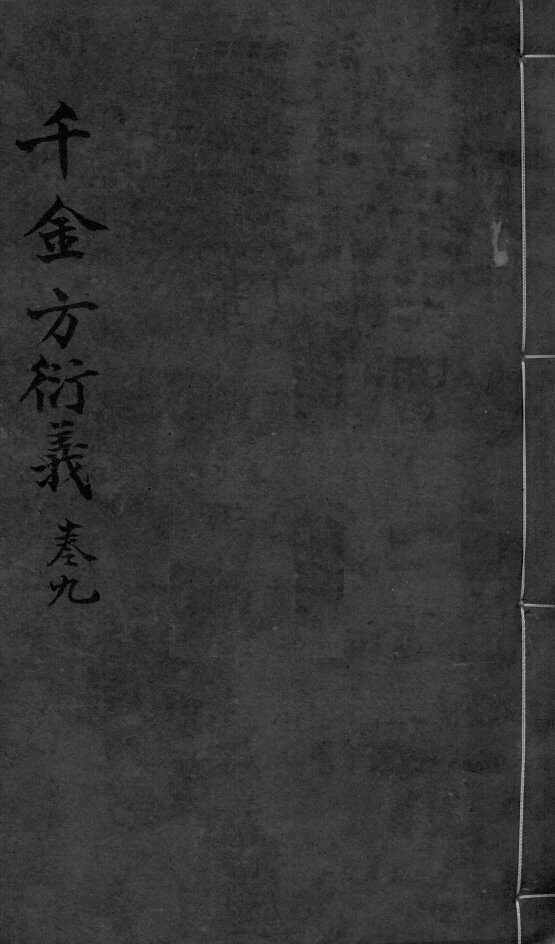 千金方衍義 卷九